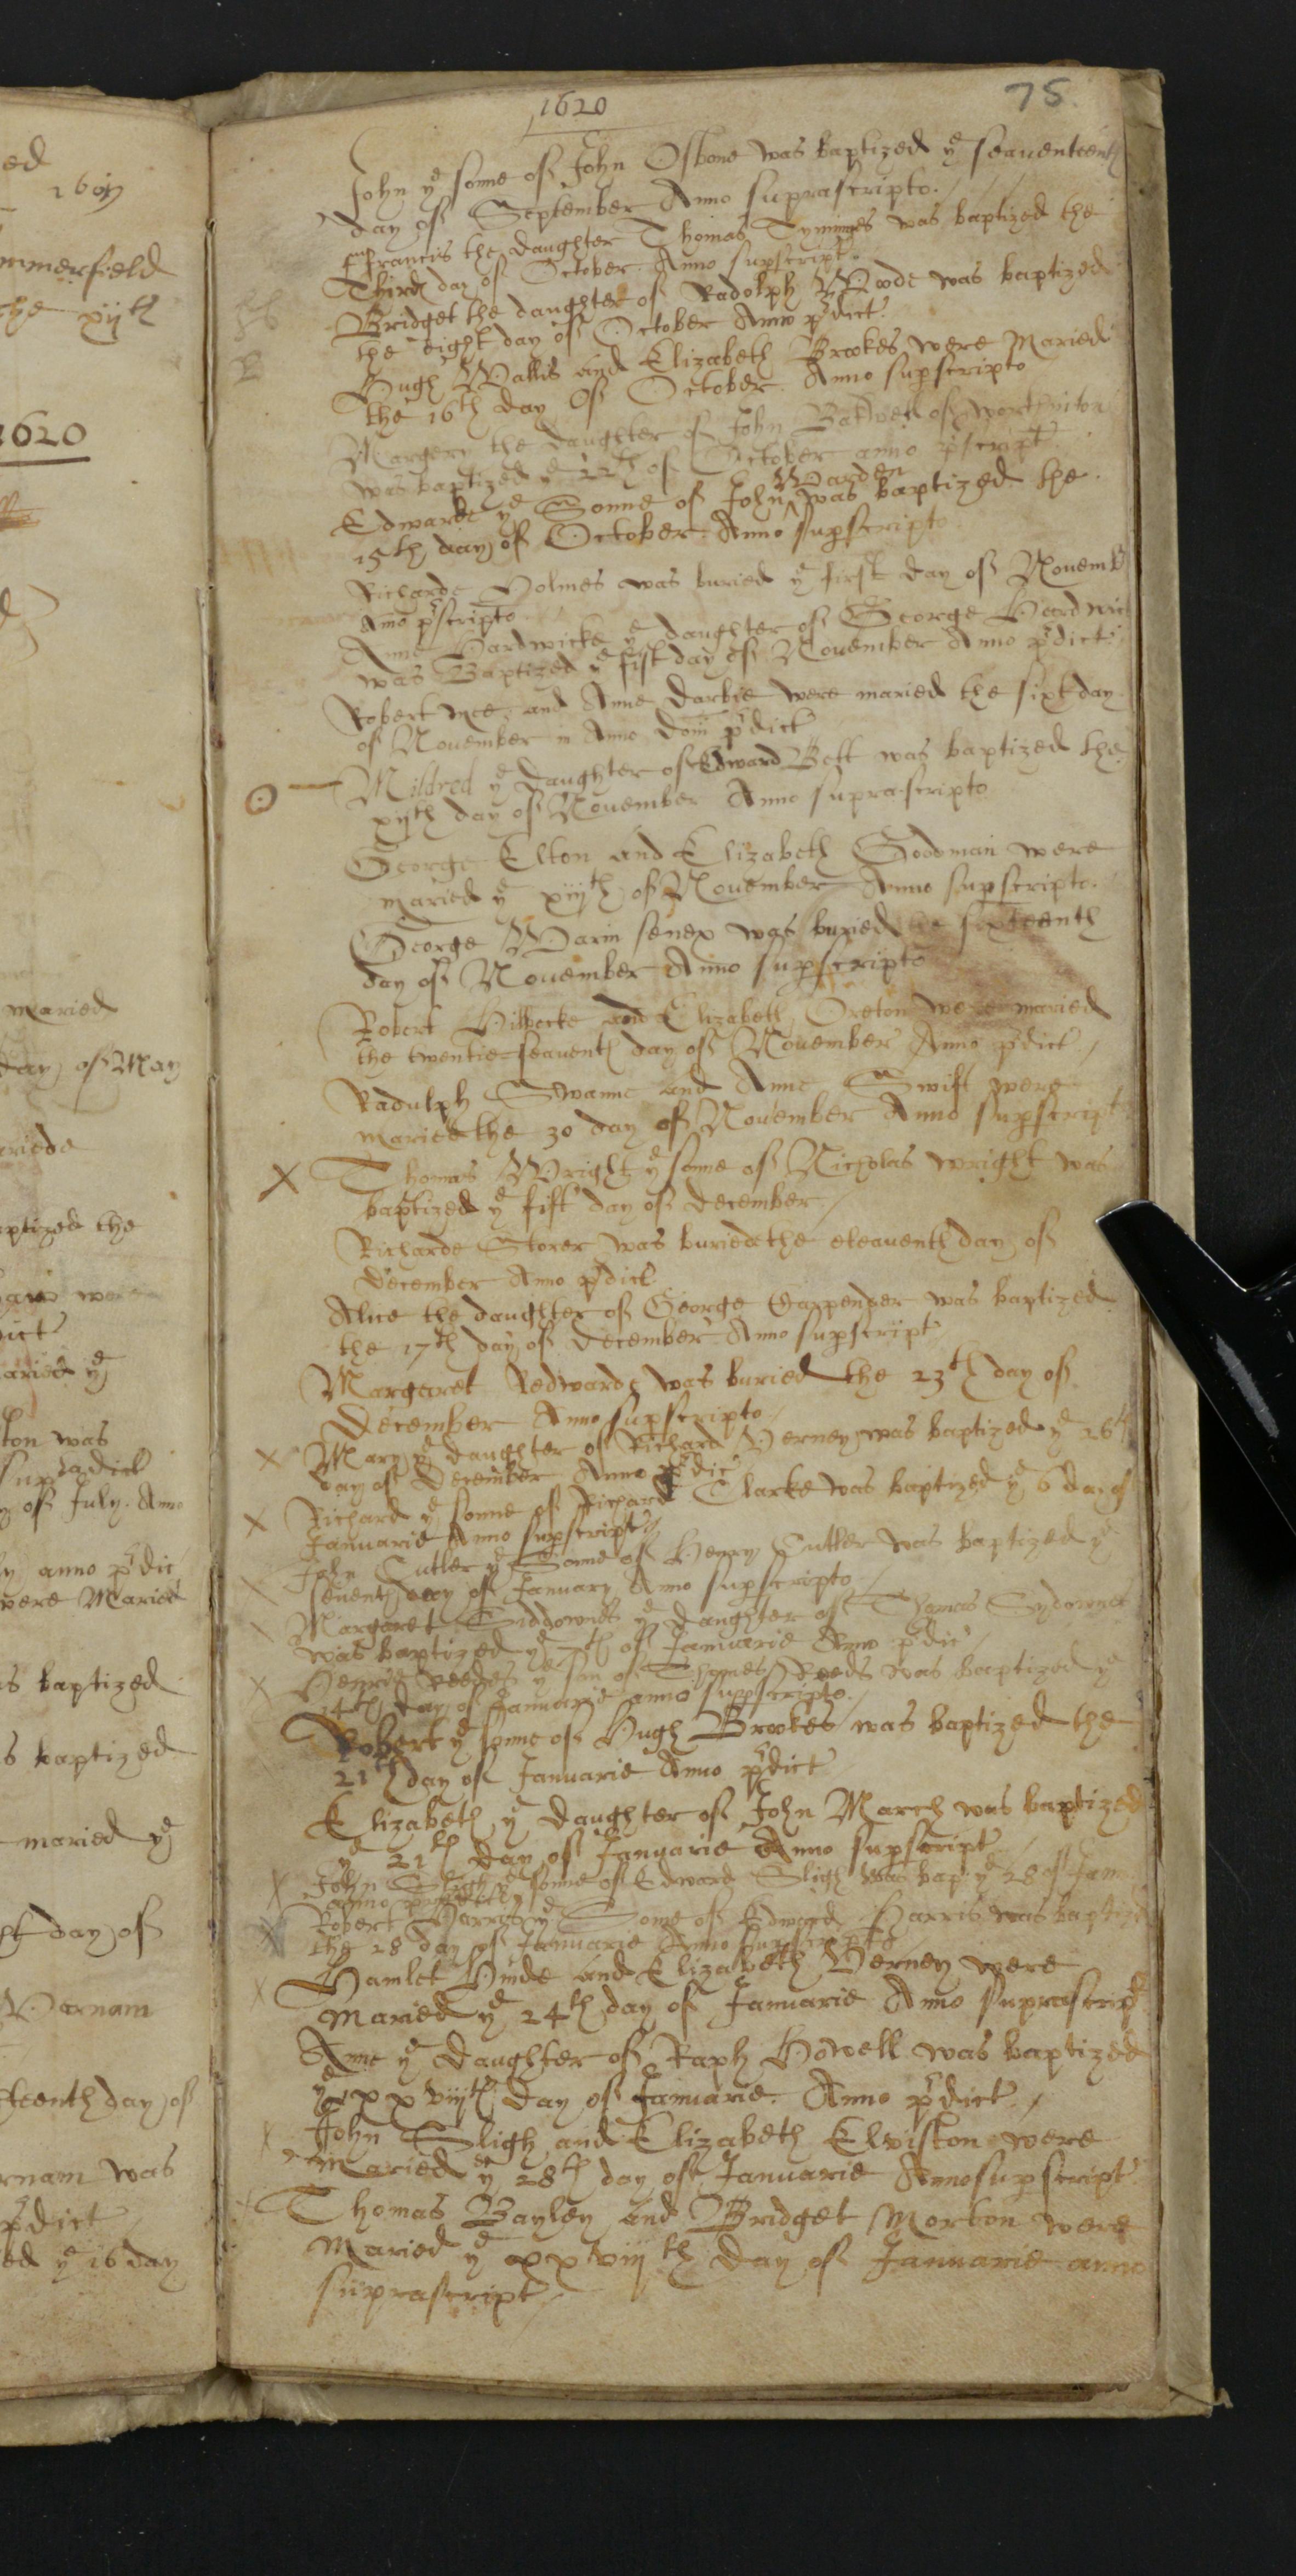 ed
1619
mmerfield
the xijth
1620
maried
day of May
ariede
aptized the
were
dict
maried ye
ton was
supradict
of July. Anno
anno pdic
were Maried
is baptized
s baptized
maried ye
day of
Varnam
teenth day of
rnam was
pdict
ed ye 16 day
1620
75
John ye sonne of John Osbone was baptized ye seauenteenth
day of September Anno suprascripto.
Francis the daughter Thomas Tymmes was baptized the
Third day of October Anno supscript.
Bridget the daughter of Radolph Woode was baptized
the eight day of October Anno pdict.
Hugh Wallis and Elizabeth Brookes were Maried
the 16th day Of October. Anno supscripto
Margery the daughter of John of
was baptized ye 12th of October anno pscript.
Warden
Edwarde ye Sonne of John ^ was baptized the
15th day of October. Anno supscripto
Richarde Holmes was buried ye first day of Nouemb
Anno pscripto
Anne Hardwicke ye daughter of George Hardwic
was Baptized ye fist day of Nouember Anno pdict.
Robert Mee, and Anne Darbie were maried the sixt day
of Nouember in Anno Dom pdict
Mildred ye Daughter of Edward Bott was baptized the
xijth day of Nouember Anno suprascripto
George Elton and Elizabeth Goodman were
maried ye xiijth of Nouember Anno supscripto.
George Warin senex was buried the sixteenth
day of Nouember Anno supscripto
Robert and Elizabeth Oreton were maried
the twentie-seauenth day of Nouember Anno pdict
Radulph Swanne and Anne Swift were
maried the 30 day of Nouember Anno supscript
X Thomas Wright ye sonne of Nicholas wright was
baptized ye fift day of december
Richarde Storer was buried the eleauenth day of
December Anno pdict
Alice the daughter of George Carpenter was baptized
the 17th day of december Anno supscript
Margaret Redwarde was buried the 23th day of
December Anno supscripto
X Mary ye daughter of Richard Verney was baptized ye 26th
day of December Anno pdic
X Richard ye sonne of Richard Clarke was baptized ye 6 day of
Januarie Anno supscript
John Cutler ye Sonne of Henry Cutler was baptized ye
seuenth day of January Anno supscripto
Margaret ye daughter of Thomas
was baptized ye 7th of Januarie Anno pdic
X Henrie Reedes ye son of Thomas Reeds was baptized ye
14th day of Januarie anno supscripto.
Robert ye sonne of Hugh Brookes was baptized the
21th day of Januarie Anno pdict
Elizabeth ye Daughter of John March was baptized
ye 21th day of Januarie Anno supscript
X John Sligh ye sonne of Edward Sligh was bap: ye 28 of Jan
anno
X Robert Harris ye Sonne of Edward Harris was baptized
the 28 day of Januarie Anno supscripto
X Hamlet Hinde and Elizabeth Verney were
Maried ye 24th day of Januarie Anno suprascript
Anne ye Daughter of Raph Howell was baptized
ye xxviijth day of Januarie. Anno pdict.
X John Sligh and Elizabeth Elviston were
Maried ye 28th day of Januarie Anno supscript
Thomas Bayley and Bridget Morton were
Maried ye xxviijth day of Januarie anno
suprascript